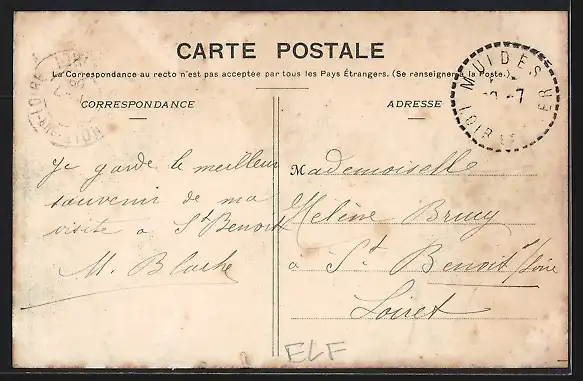 CARTE POSTALE
La Correspondance au recto n'est pas acceptée par tous les Pays Étrangers. (Se renseigner à la Poste.)
CORRESPONDANCE
ADRESSE
MUIDES
LOIR ET CHER
Je garde le meilleur
souvenir de ma
visite à St Benoit
M. Blache
Mademoiselle
Hélène Brucy
à St. Benoit s/Loire
Loiret
ELF